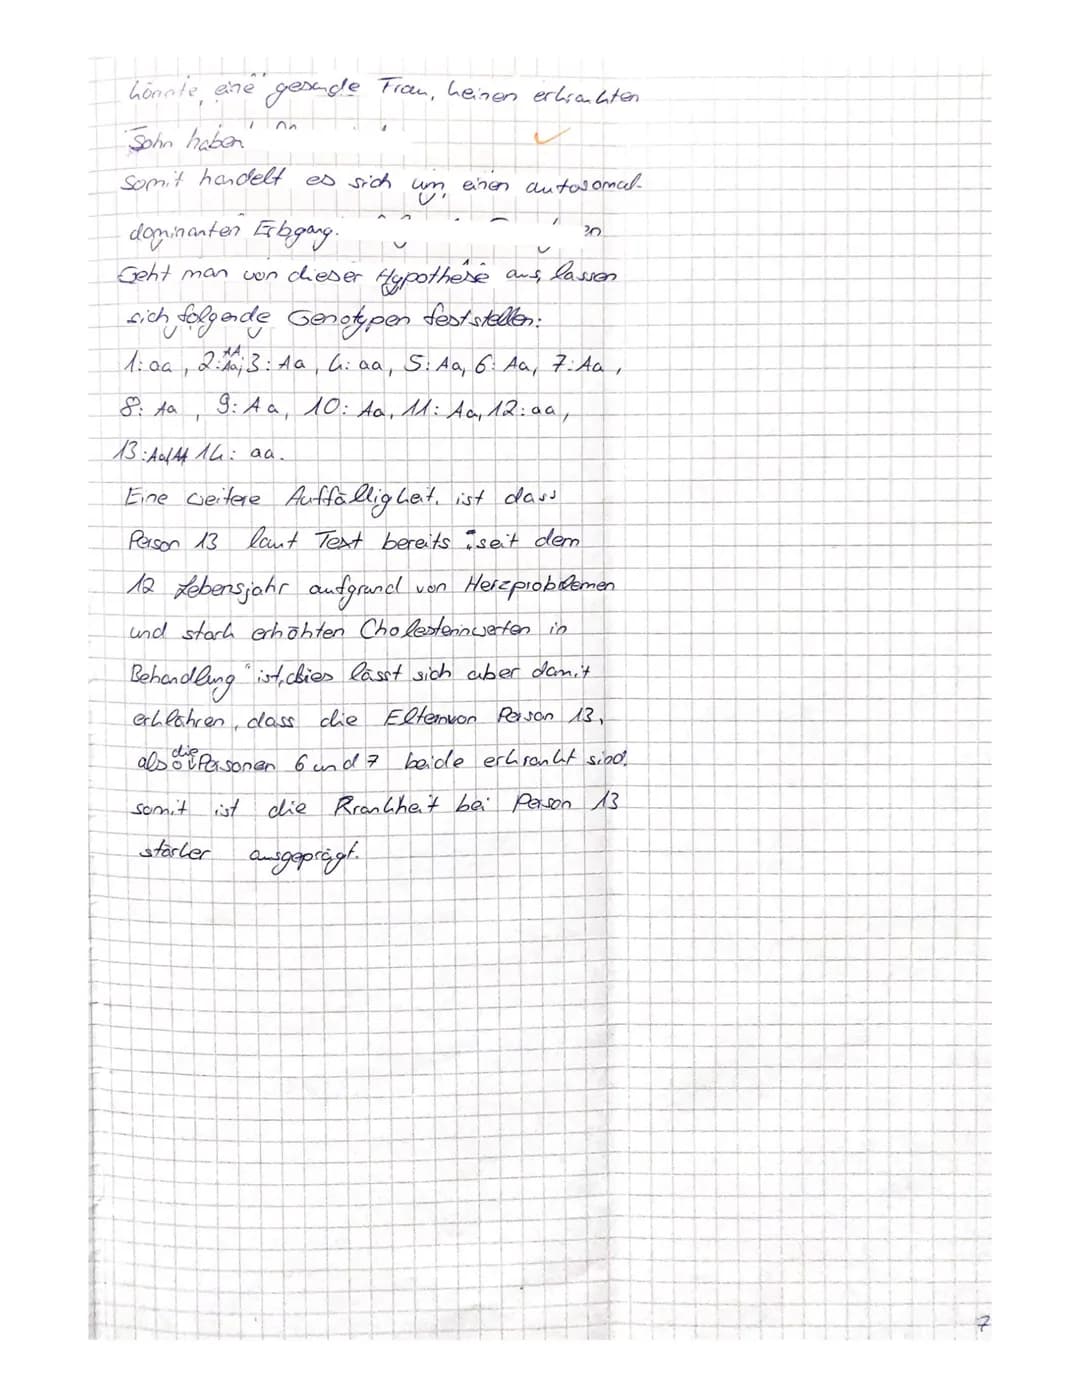 könnte eine gesunde Frau, keinen erkrankten
Sohn haben
Somit handelt es sich um einen autosomal-
dominanten Erbgang.
Geht man von dieser Hypothese aus, lassen
sich folgende Genotypen feststellen:
1: aa, 2: AA 3: Aa, 4: aa, 5: Aa, 6: Aa, 7: Aa,
8: Aa, 9: Aa, 10: Aa, 11: Aa, 12: aa,
13: Aa/AA 14: aa.
Eine weitere Auffälligkeit, ist dass
Person 13 laut Text bereits "seit dem
12 Lebensjahr aufgrund von Herzproblemen
und stark erhöhten Cholesterinwerten in
Behandlung" ist, dies lässt sich aber damit
erklähren, dass die Eltern von Person 13,
also die Personen 6 und 7 beide erkrankt sind,
somit ist die Krankheit bei Person 13
stärker ausgeprägt.
7